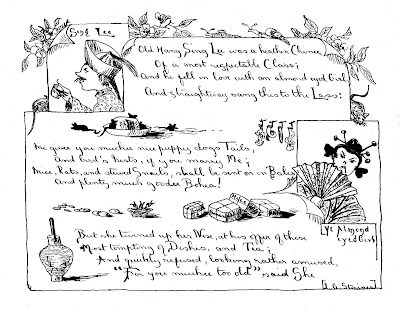 Sing Lee
Old Hang Sing Lee was a heathen Chinee,
Of a most respectable Class;
And he fell in love with an almond eyed Girl
And straightway sang this to the Lass:
Me givee you muchee nice puppy dogs Tails,
And bird's Nests, if you marry Me;
Mice, Rats, and stewed Snails, shall be sent on in Bales
And plenty much goodee Bohea!
But she turned up her Nose, at his offer of these
Most tempting of Dishes, and Tea;
And quickly refused, looking rather amused,
"For you muchee too old" said She
Ye Almond
eyed Girl